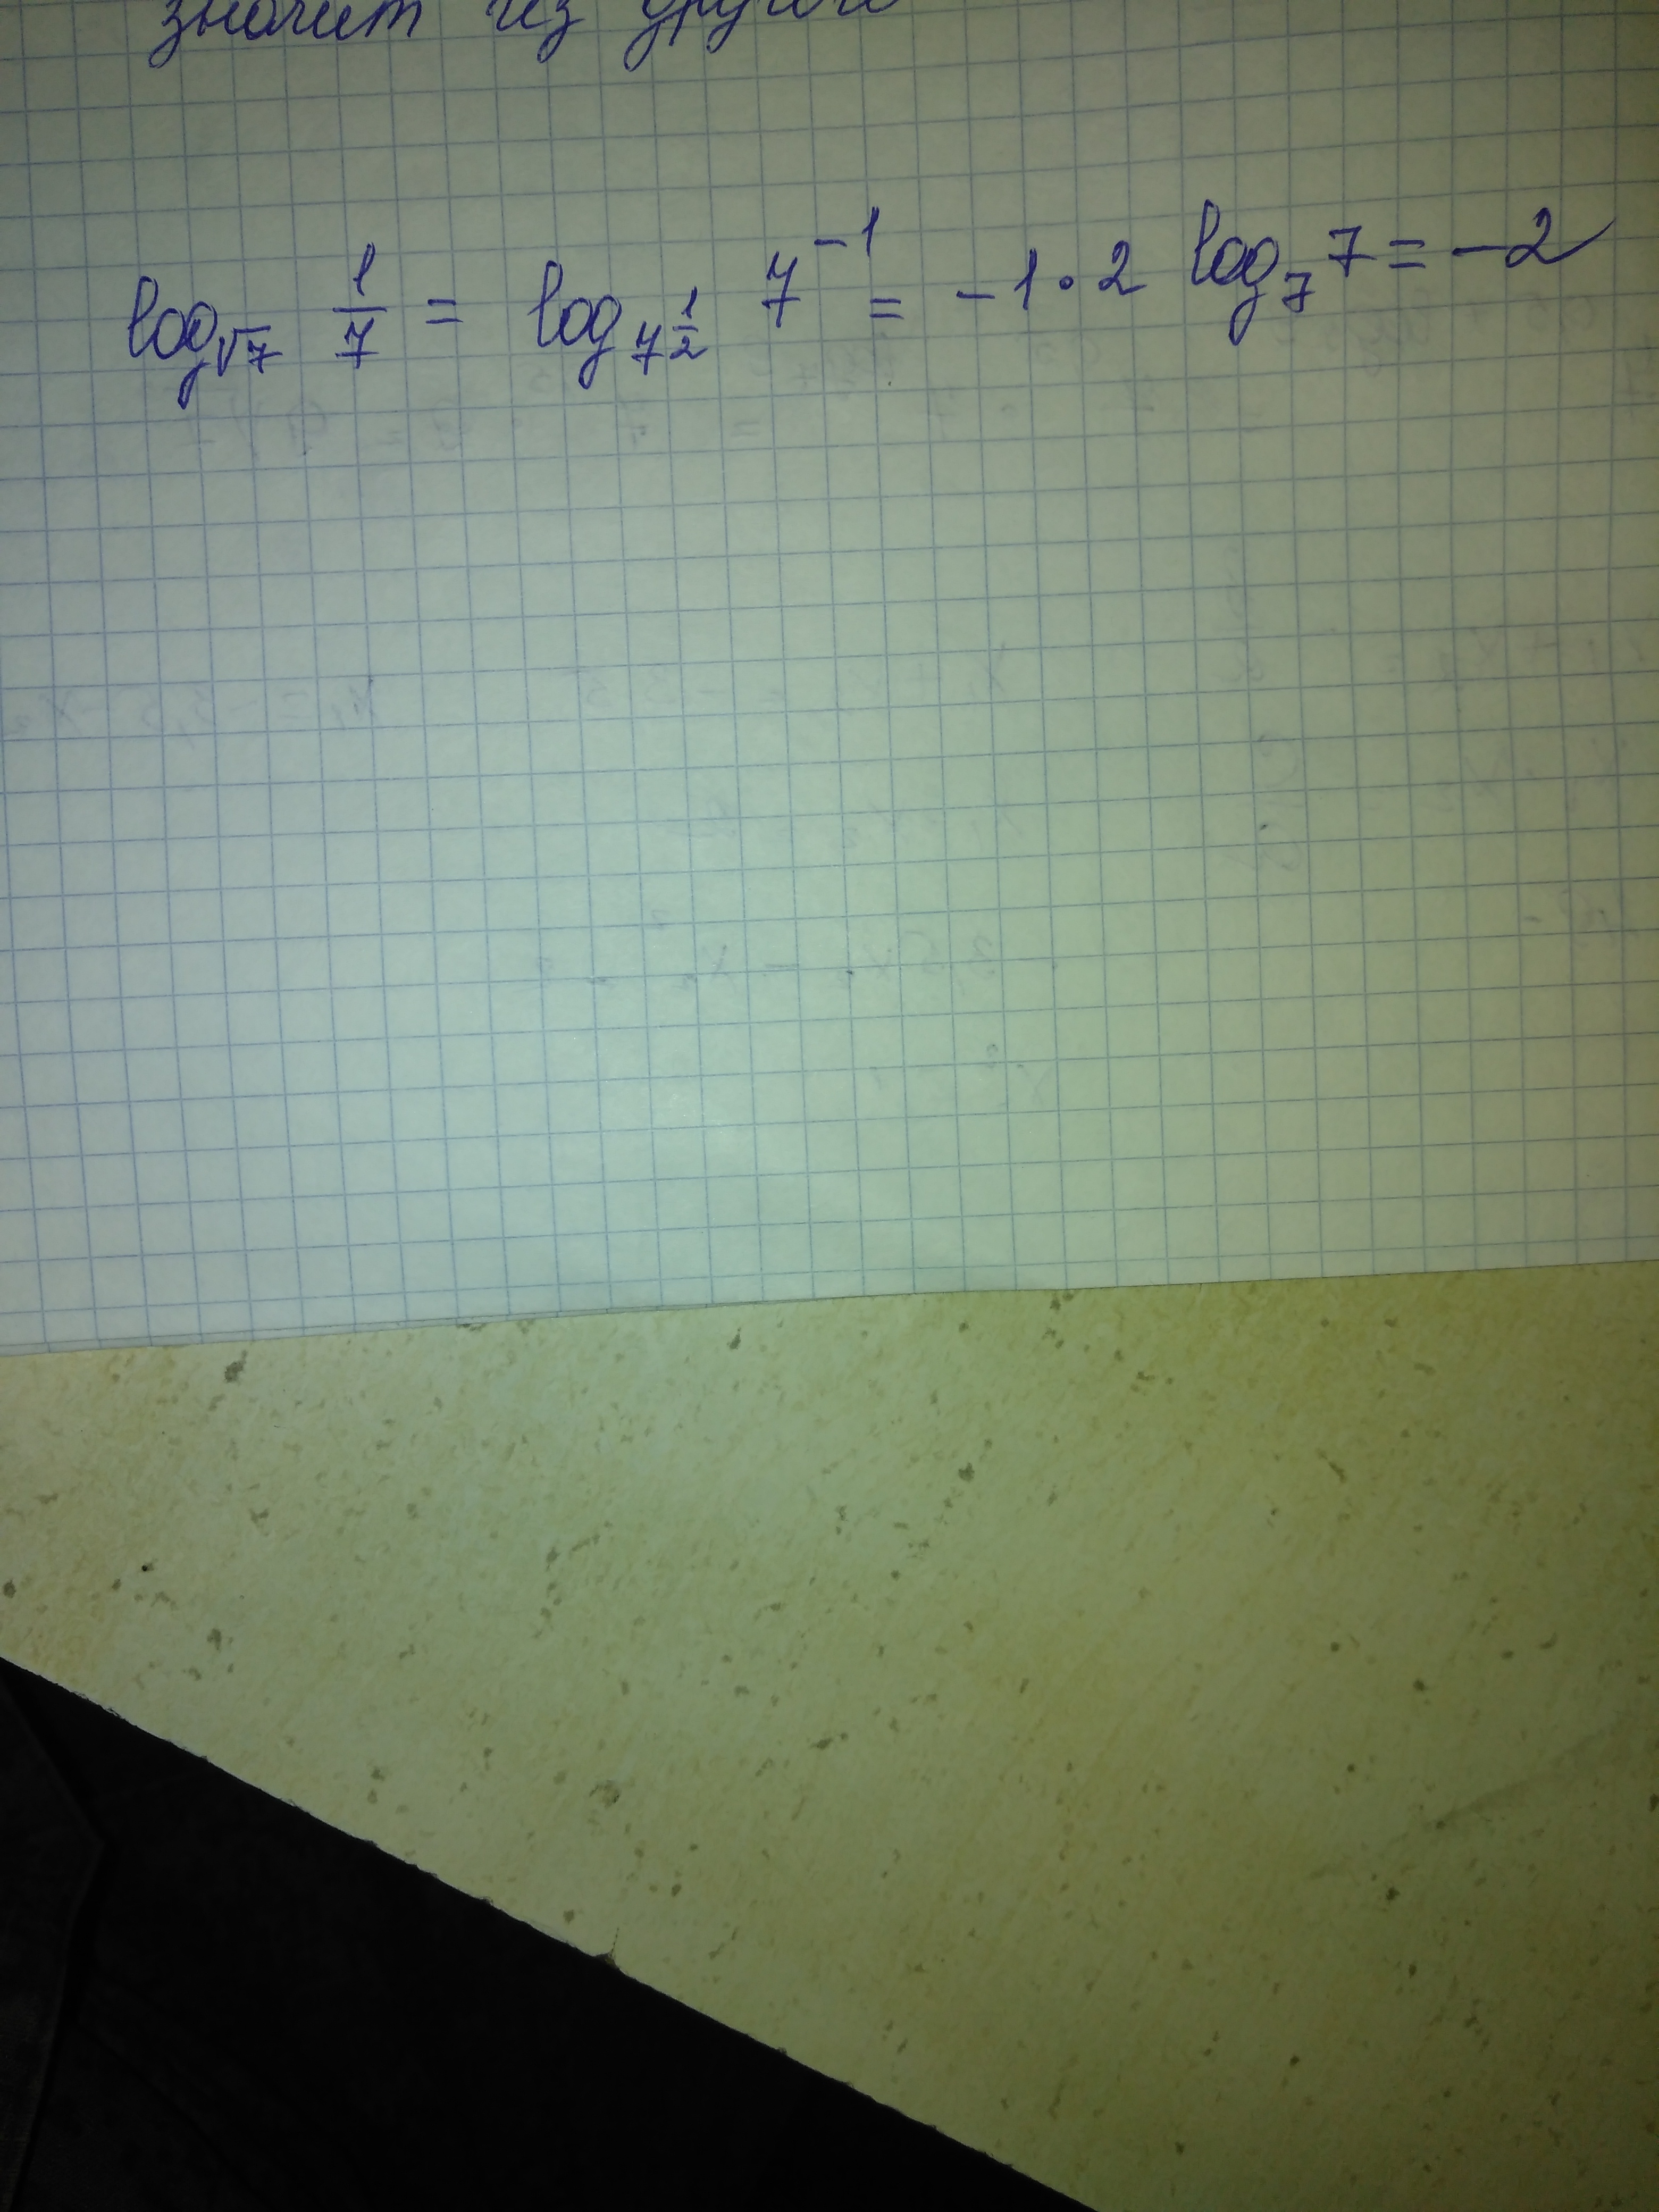 значит из другого
log_{√7} 1/7 = log_{7^{1/2}} 7^{-1} = -1·2 log_7 7 = -2